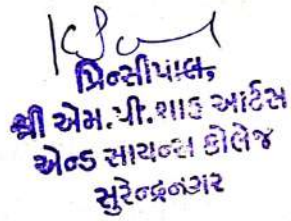 પ્રિન્સીપાલ,
શ્રી એમ.પી.શાહ આર્ટસ
એન્ડ સાયન્સ કોલેજ
સુરેન્દ્રનગર